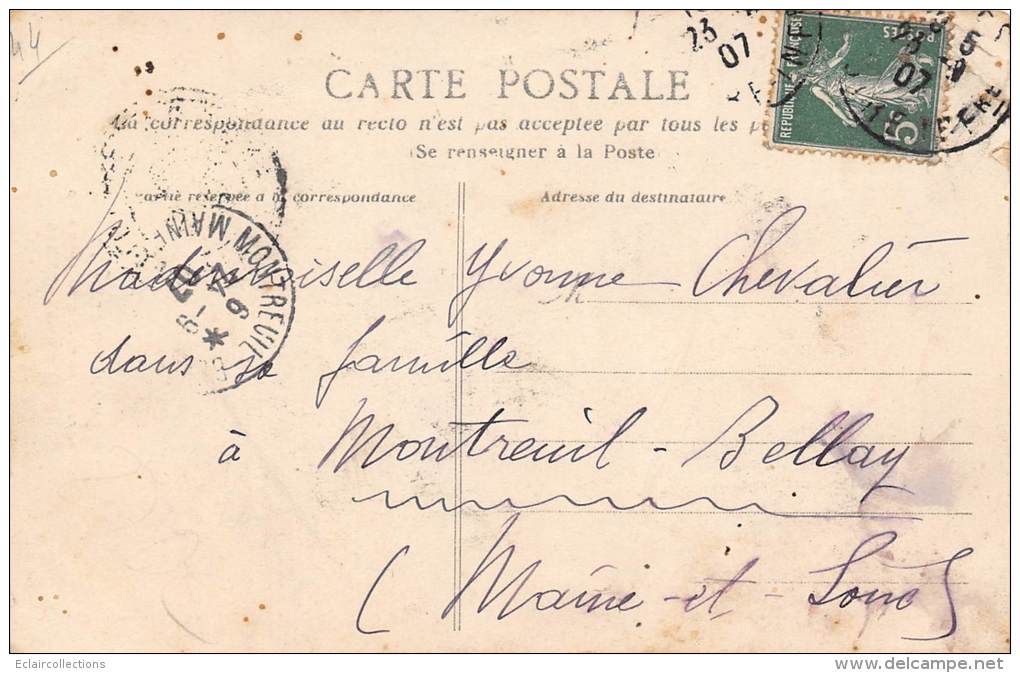 44
CARTE POSTALE
La correspondance au recto n'est pas acceptée par tous les
(Se renseigner à la Poste
réservée a la correspondance
Adresse du destinataire
REPUBLIQUE FRANÇAISE
POSTES
5
23
07
MONTREUIL
MAINE
Mademoiselle Yvonne Chevalier
dans sa famille
à Montreuil-Bellay
(Maine-et-Loire)
Eclaircollections
www.delcampe.net